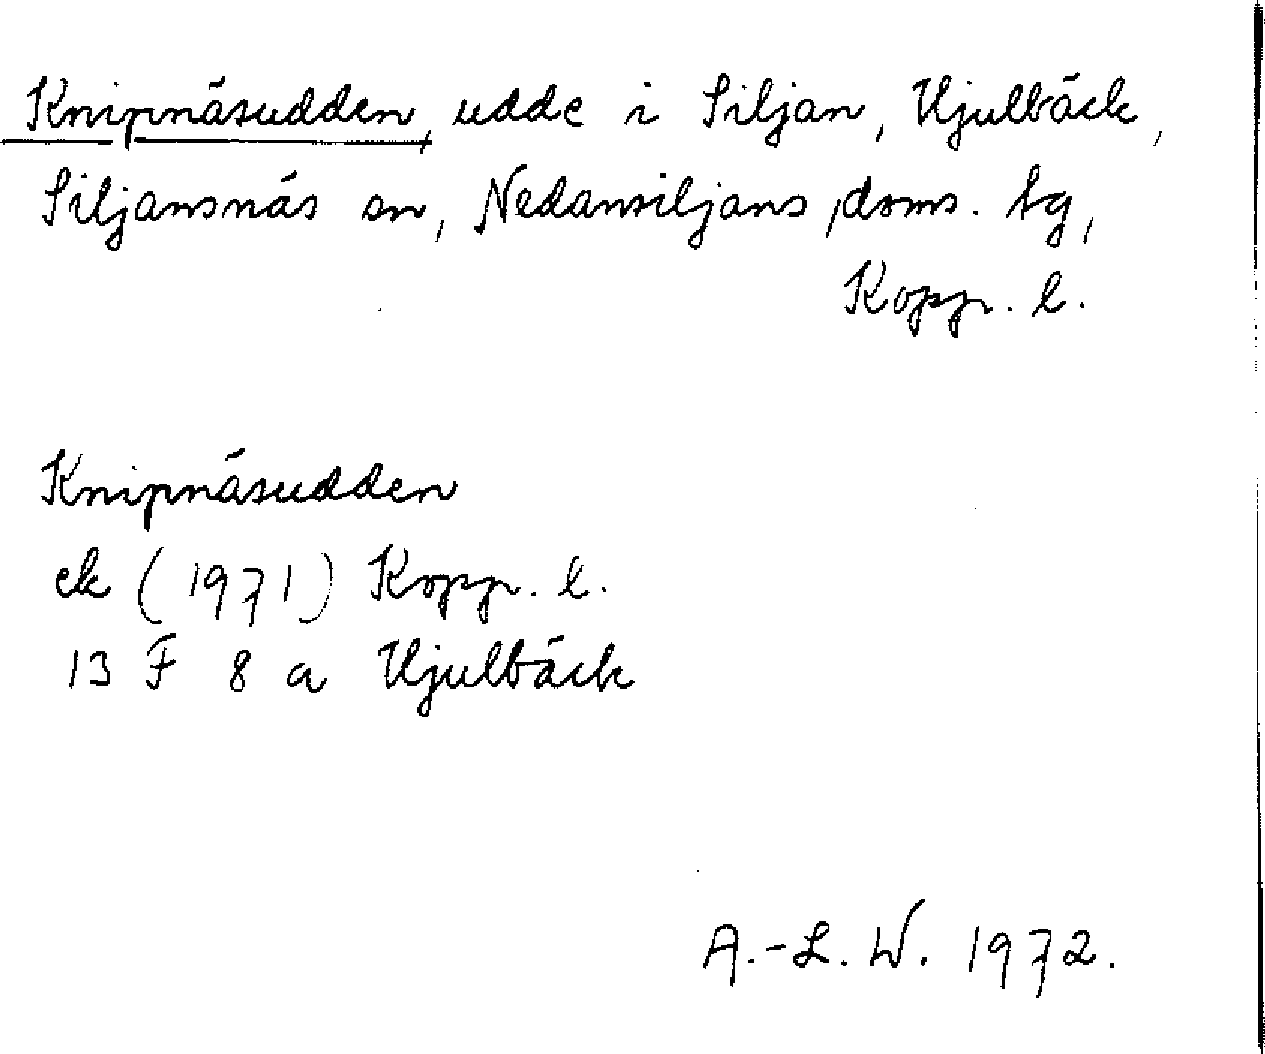 Knipnäsudden, udde i Siljan, Hjulbäck,
Siljansnäs sn, Nedansiljans doms. tg,
Kopp. l.
Knipnäsudden
ek (1971) Kopp. l.
13 F 8 a Hjulbäck
A.-L. W. 1972.